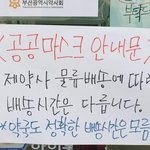 부산광역시약사회
<공공마스크 안내문>
제약사 물류배송에 따라
배송시간은 다릅니다.
*약국도 정확한 배송시간은 모름